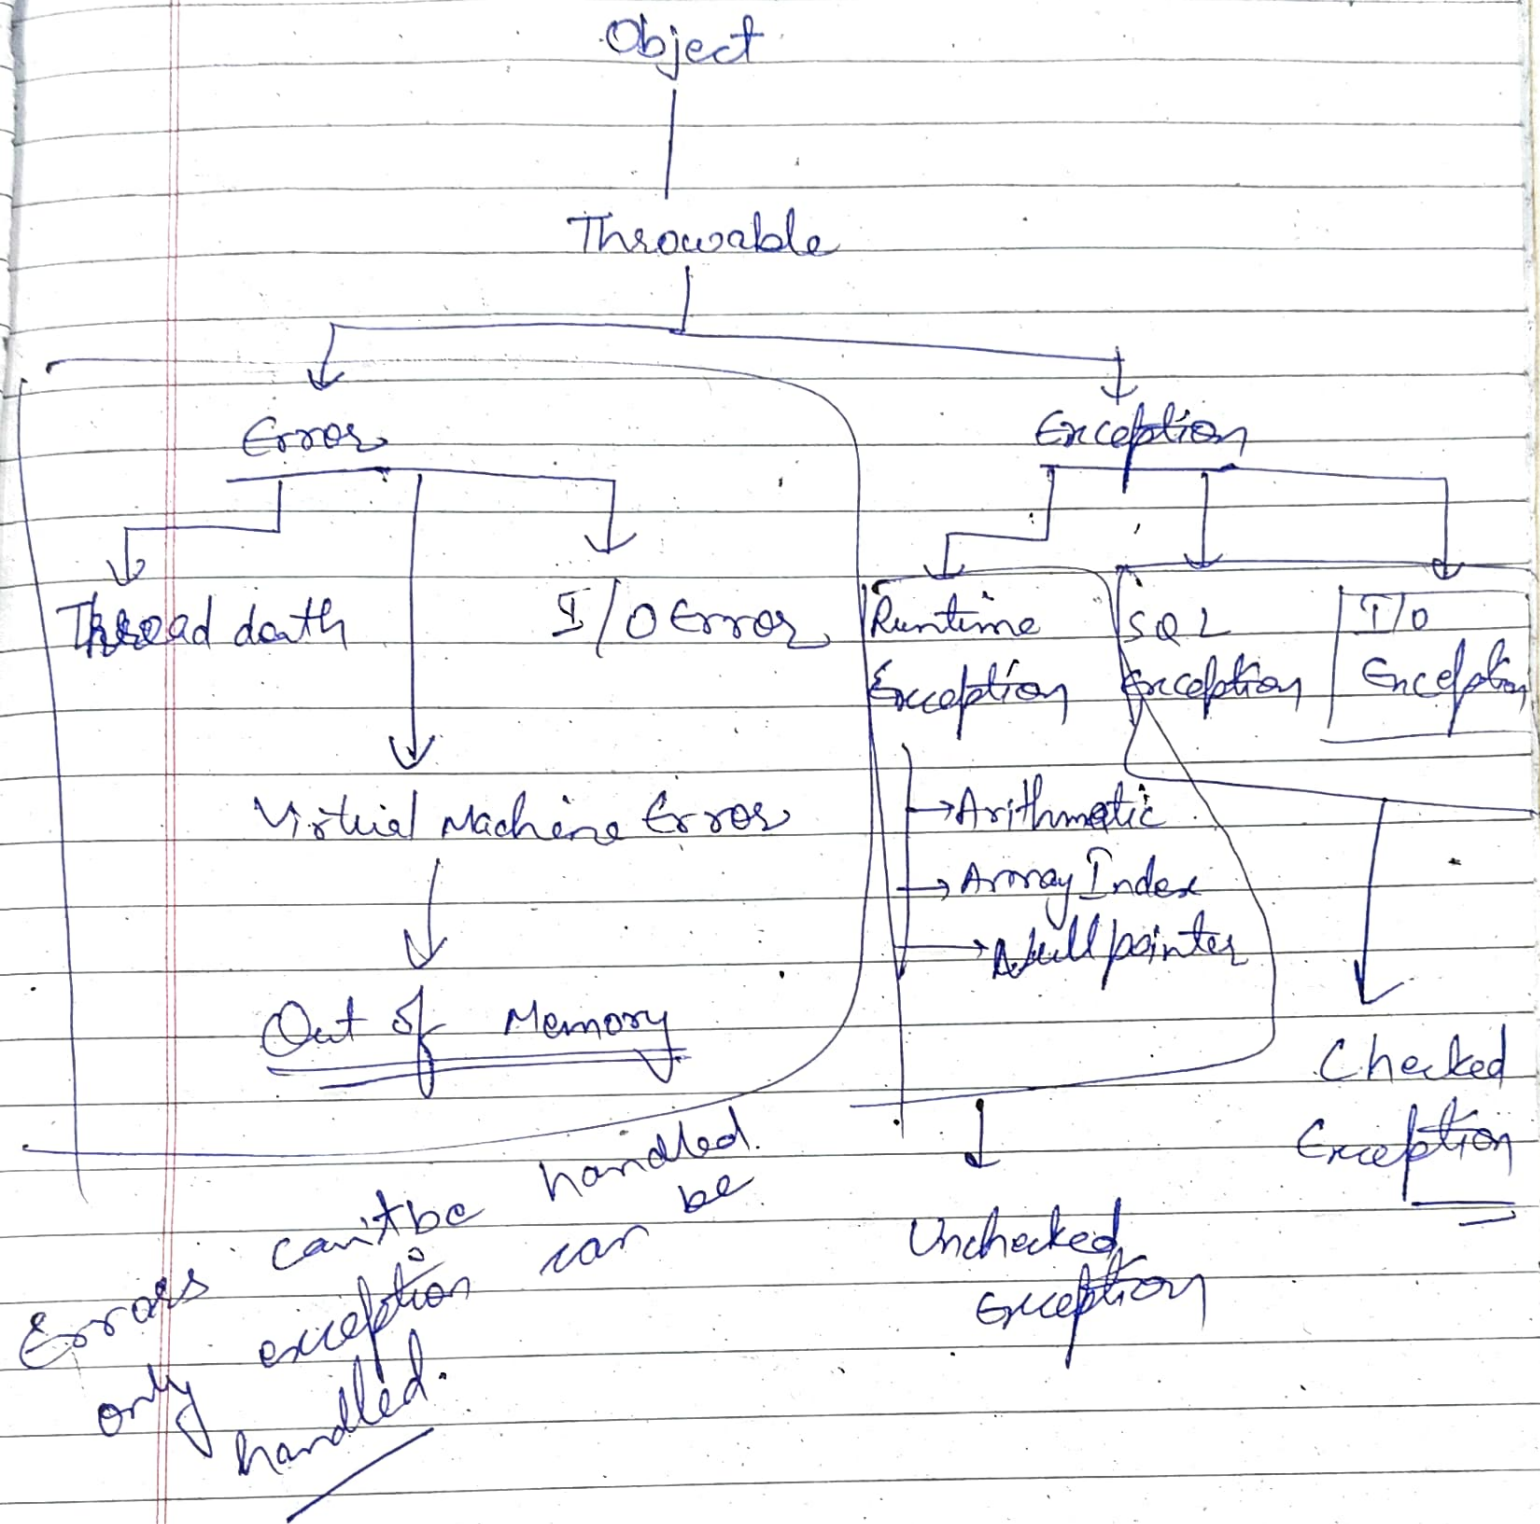 Object
Throwable
Error
Exception
Thread death
I/O Error
Runtime
Exception
SQL
Exception
I/O
Exception
Virtual Machine Error
Out of Memory
→Arithmatic
→Array Index
→Nullpointer
Checked
Exception
Unchecked
Exception
Errors can't be handled.
only exception can be
handled.